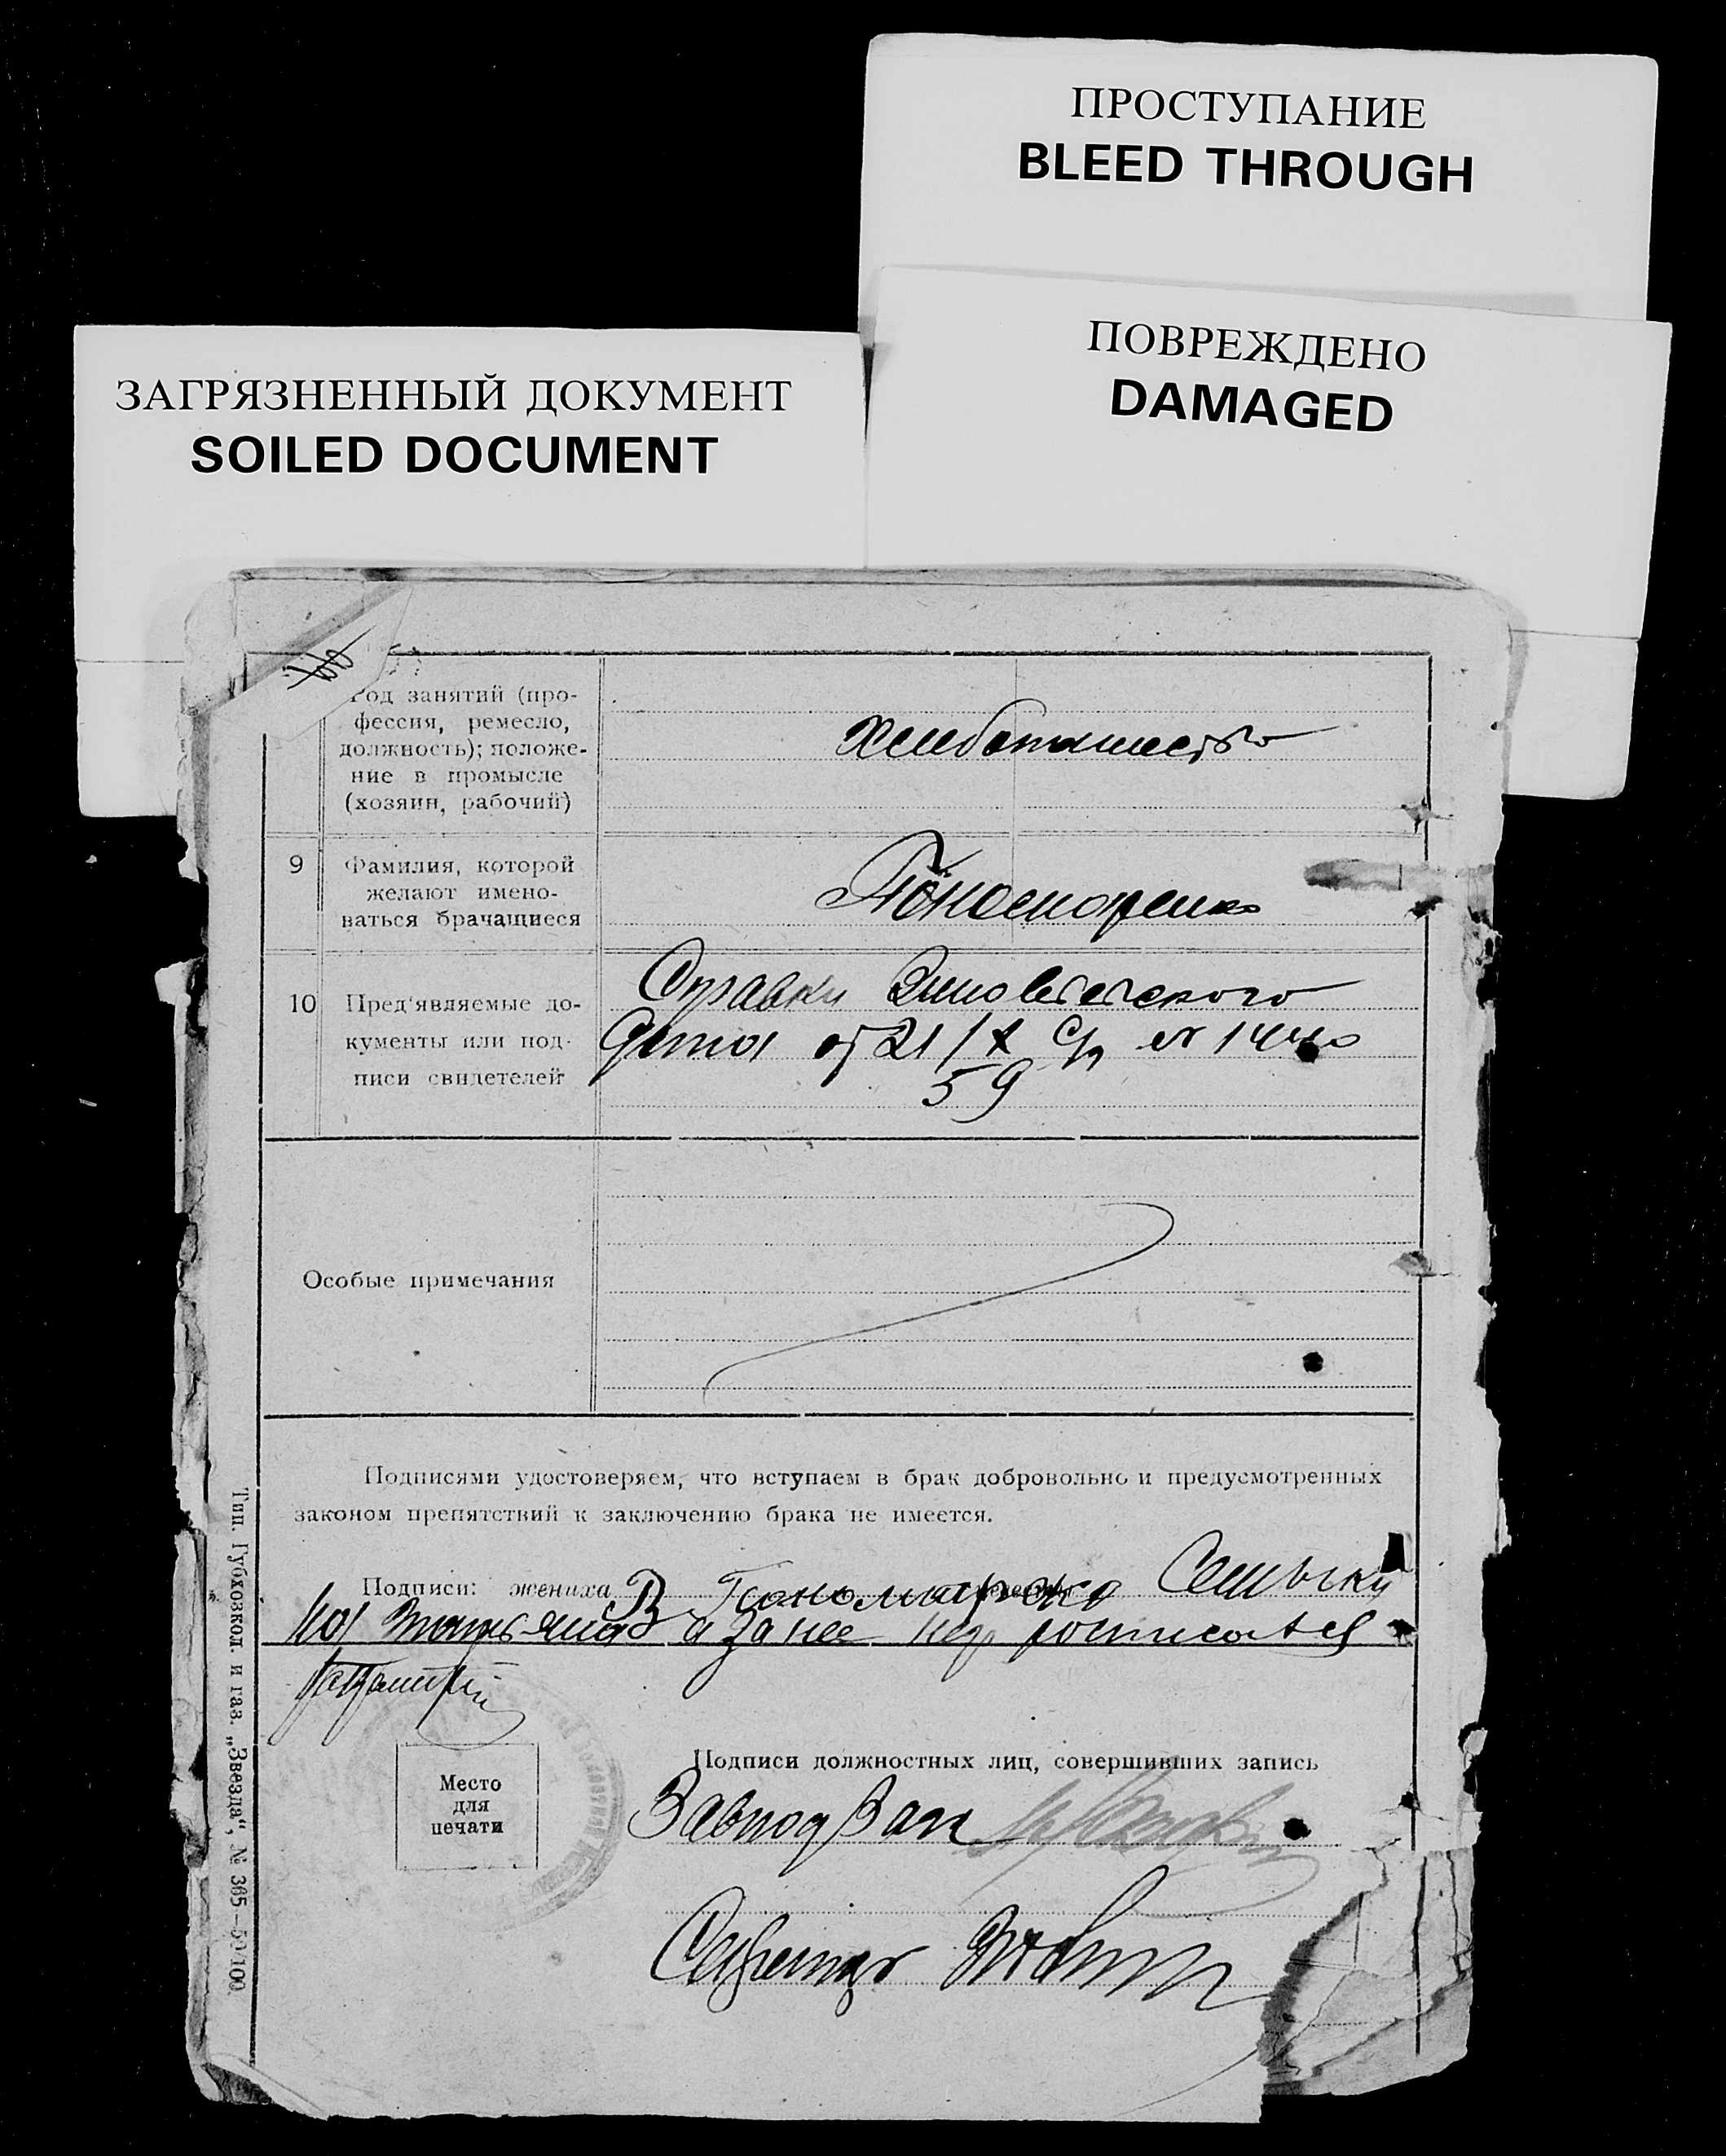 ПРОСТУПАНИЕ
BLEED THROUGH
ПОВРЕЖДЕНО
DAMAGED
ЗАГРЯЗНЕННЫЙ ДОКУМЕНТ
SOILED DOCUMENT
Род занятий (про-
фессия, ремесло,
должность); положе-
ние в промысле
(хозяин, рабочий)
9
Фамилия, которой
желают имено-
ваться брачащиеся
Пономаренко
10
Пред'являемые до-
кументы или под-
писи свидетелей
Справки
от 21/X с/г № 1440
59
Особые примечания
Подписями удостоверяем, что вступаем в брак добровольно и предусмотренных
законом препятствий к заключению брака не имеется.
Подписи: жениха В Пономаренко
а за нее
Место
для
печати
Подписи должностных лиц, совершивших запись
Завподзаг
Секретарь
Тип. Губхозкол. и газ. „Звезда“, № 365—50/100